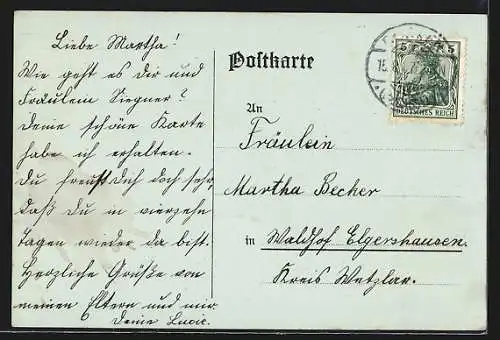 Liebe Martha!
Wie geht es dir und
Fräulein Siegner?
Deine schöne Karte
habe ich erhalten.
Du freust Dich doch sehr,
daß Du in vierzehn
Tagen wieder da bist.
Herzliche Grüße von
meinen Eltern und mir.
Deine Lucie.
Postkarte
An
Fräulein
Martha Becher
in Waldhof Elgershausen.
Kreis Wetzlar.
5 5
DEUTSCHES REICH